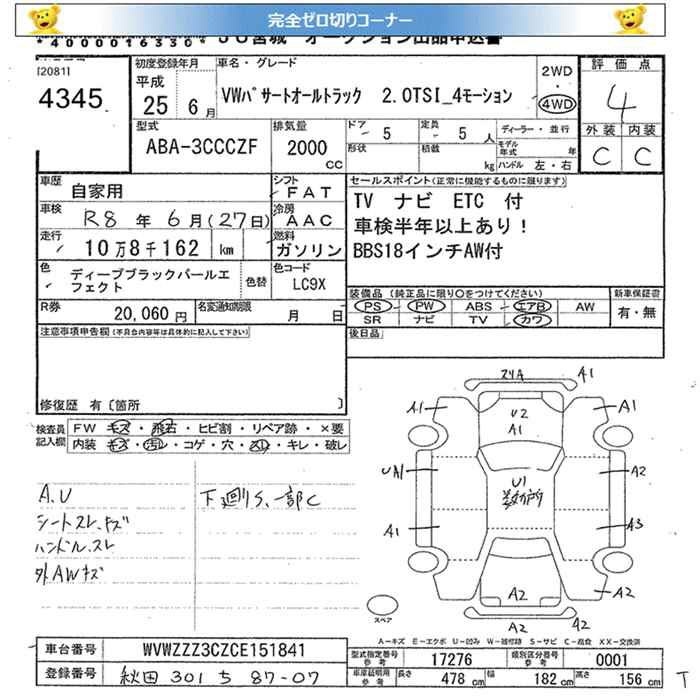 完全ゼロ切りコーナー
*4000016330* JU宮城 オークション出品申込書
[2081]
4345
初度登録年月
平成
25 6 月
車名・グレード
VWパサートオールトラック 2.0TSI_4モーション
2WD
・
4WD
評価点
4
外装 内装
C C
型式
ABA-3CCCZF
排気量
2000
CC
ドア 5
定員 5 人
形状
積載 kg
ディーラー・並行
モデル年式 年
ハンドル 左・右
車歴 自家用
車検 R8 年 6 月(27日)
走行 10万8千162 km
色 ディープブラックパールエフェクト
色替
シフト FAT
冷房 AAC
燃料 ガソリン
色コード LC9X
R券 20,060 円
名変通知期限 月 日
セールスポイント(正常に機能するものに限ります)
TV ナビ ETC 付
車検半年以上あり!
BBS18インチAW付
装備品(純正品に限り○をつけてください)
PS PW ABS エアB AW
SR ナビ TV カワ
新車保証書
有・無
後日品
注意事項申告欄(不具合内容等は具体的に記入して下さい)
修復歴 有〔箇所 〕
検査員記入欄
FW キズ・飛石・ヒビ割・リペア跡・×要
内装 キズ・汚レ・コゲ・穴・スレ・キレ・破レ
A.U
シートスレ.キズ
ハンドル.スレ
外AWキズ
下廻りS、一部C
A1
A1
U2
A1
A1
UA1
A2
U1
A1
A3
A2
A2
A2
A2
スペア
A-キズ E-エクボ U-凹み W-補修跡 S-サビ C-腐食 XX-交換済
車台番号 WVWZZZ3CZCE151841
登録番号 秋田 301 ち 87-07
型式指定番号 参考 17276
類別区分番号 参考 0001
車庫証明用 参考 長さ 478 cm 幅 182 cm 高さ 156 cm
T